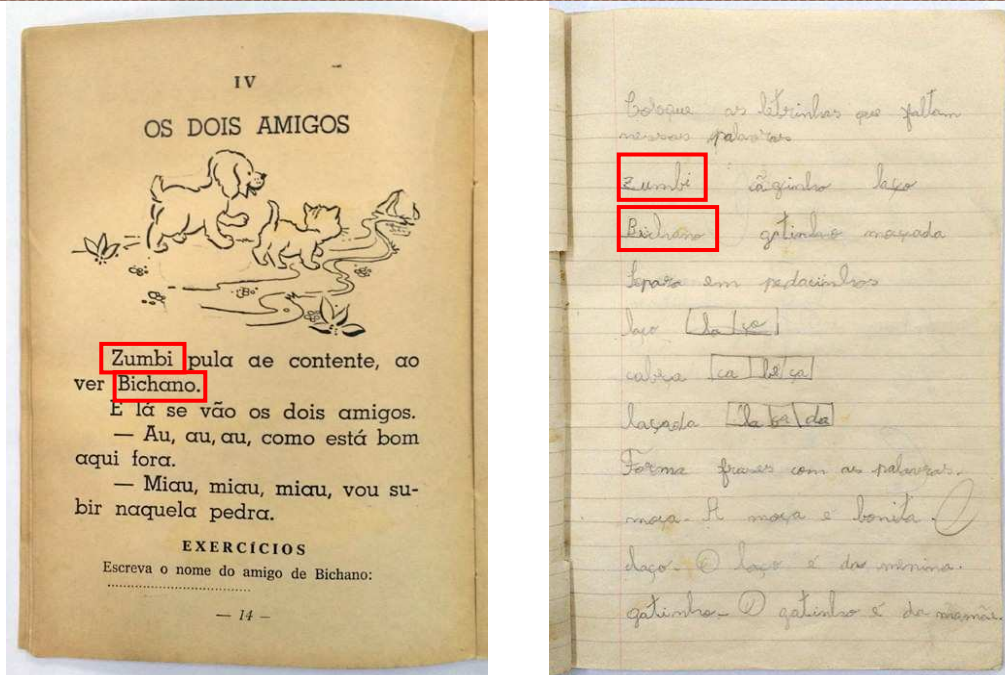 IV
OS DOIS AMIGOS
Zumbi pula de contente, ao
ver Bichano.
E lá se vão os dois amigos.
— Au, au, au, como está bom
aqui fora.
— Miau, miau, miau, vou su-
bir naquela pedra.
EXERCÍCIOS
Escreva o nome do amigo de Bichano:
— 14 —
Coloque as letrinhas que faltam
nessas palavras
Zumbi cãozinho laço
Bichano gatinho maçada
Separa em pedacinhos
laço la ço
cabeça ca be ça
laçada la ça da
Forma frases com as palavras.
moça - A moça é bonita.
laço - O laço é da menina.
gatinho - O gatinho é da mamãe.